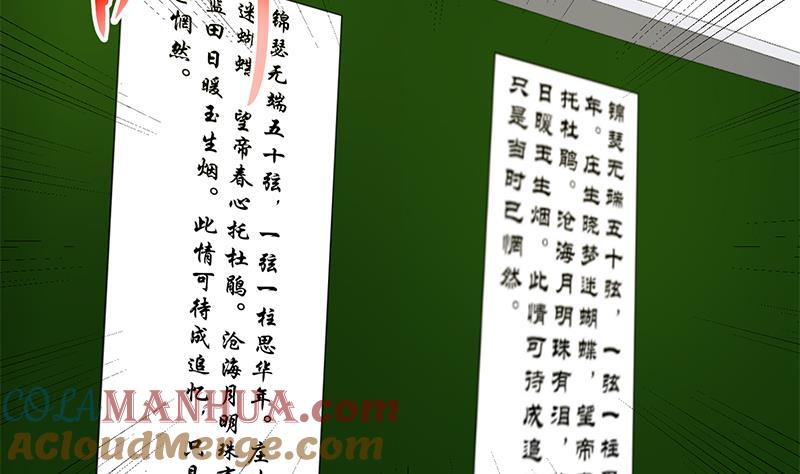 锦瑟无端五十弦，一弦一柱
年。庄生晓梦迷蝴蝶，望帝
托杜鹃。沧海月明珠有泪，
日暖玉生烟。此情可待成追
只是当时已惘然。
锦瑟无端五十弦，一弦一柱思华年。庄
迷蝴蝶 望帝春心托杜鹃。沧海月明珠
蓝田日暖玉生烟。此情可待成追忆，只是
惘然。
COLAMANHUA.com
AcloudMerge.com